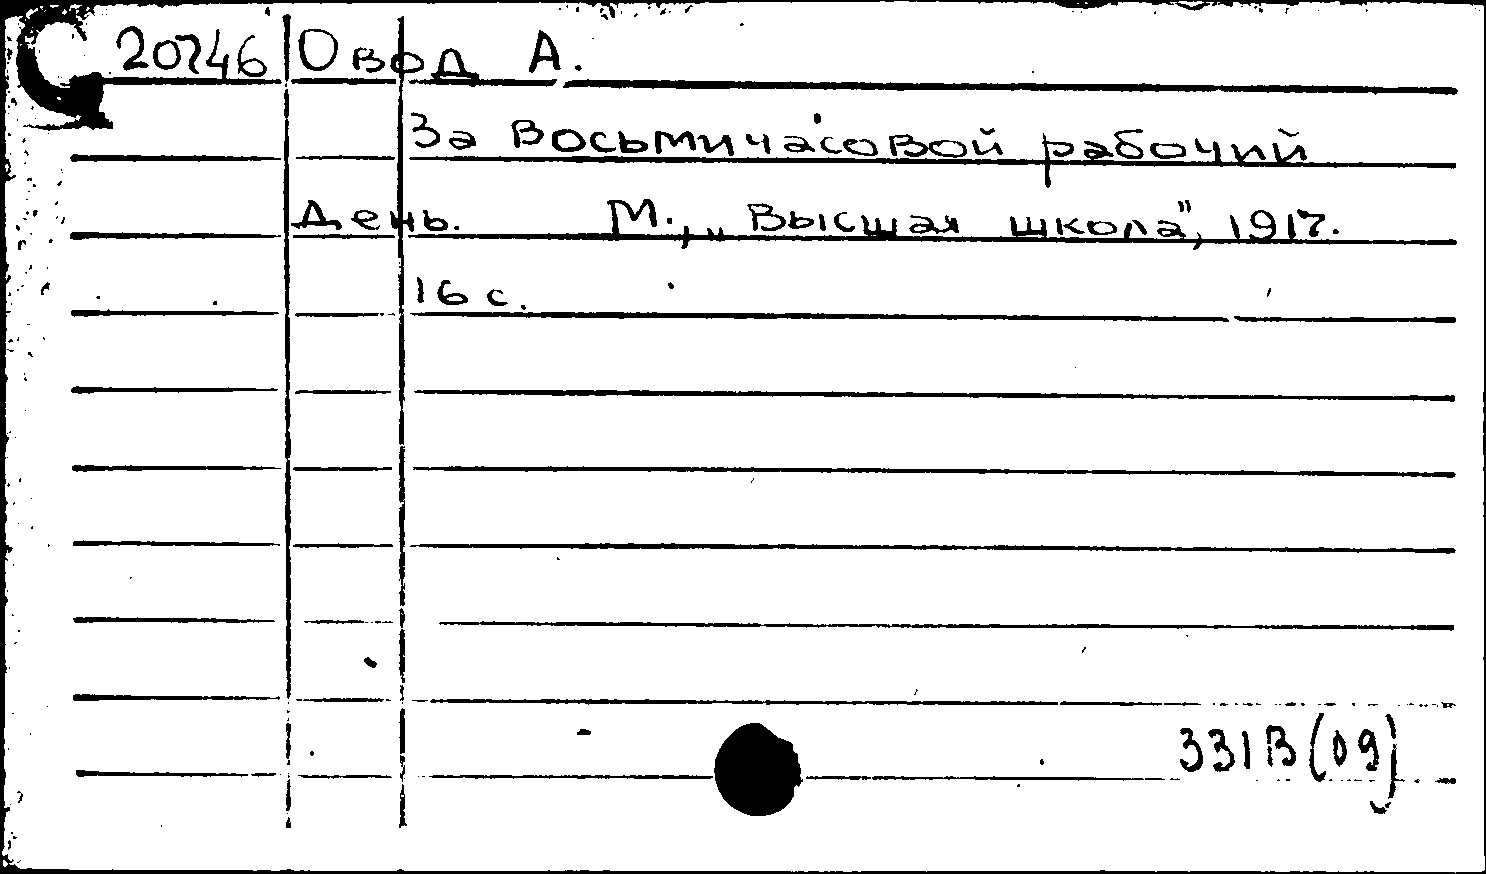 20746 Овод А.
За восьмичасовой рабочий
день. М., „Высшая школа", 1917.
16 с.
331В(09)